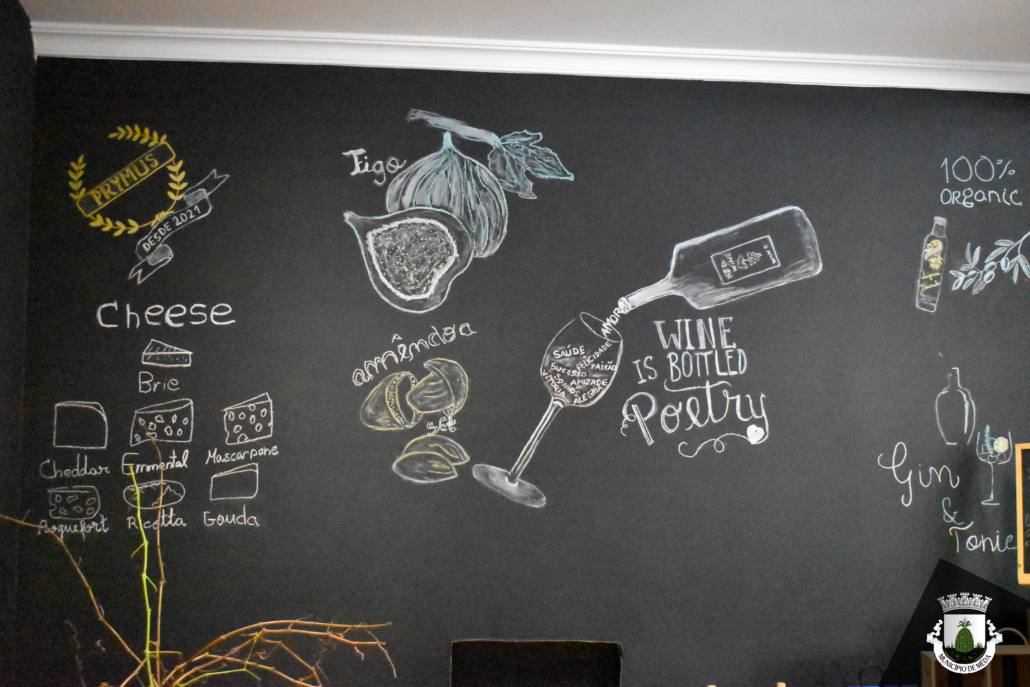 PRYMUS
DESDE 2021
Cheese
Brie
Cheddar
Emmental
Mascarpone
Roquefort
Ricotta
Gouda
Figo
amêndoa
AMOR
SAÚDE
FELICIDADE
SUCESSO
PAIXÃO
AMIZADE
VITÓRIA
ALEGRIA
WINE
IS BOTTLED
Poetry
100%
ORGANIC
Gin
&
Tonic
MUNICÍPIO DE MEDA